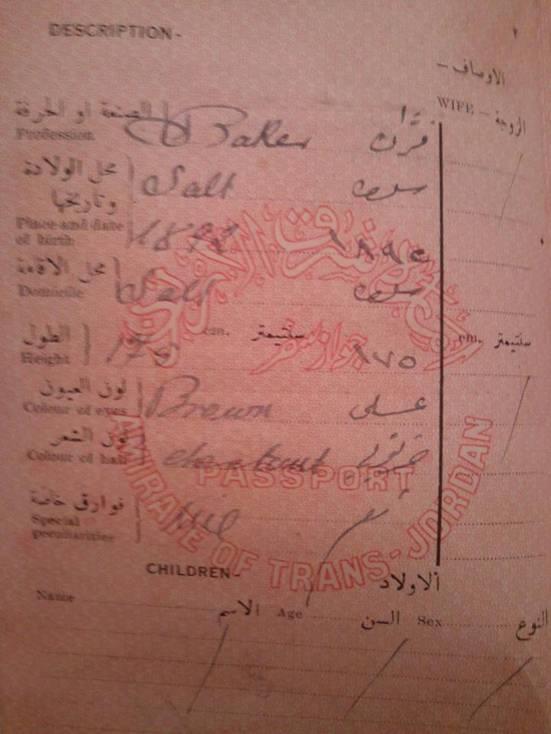 DESCRIPTION-
الاوصاف-
WIFE - الزوجة
الصنعة او الحرفة
Profession
Baker
فران
محل الولادة وتاريخها
Place and date of birth
Salt
سلط
محل الاقامة
Domicile
Salt
سلط
الطول
Height
cm.
سنتيمتر
١٧٥
cm.
سنتيمتر
لون العيون
Colour of eyes
Brown
عسلي
لون الشعر
Colour of hair
فوارق خاصة
Special peculiarities
Nil
PASSPORT
EMIRATE OF TRANS-JORDAN
CHILDREN-
الاولاد
Name
الاسم
Age
السن
Sex
النوع